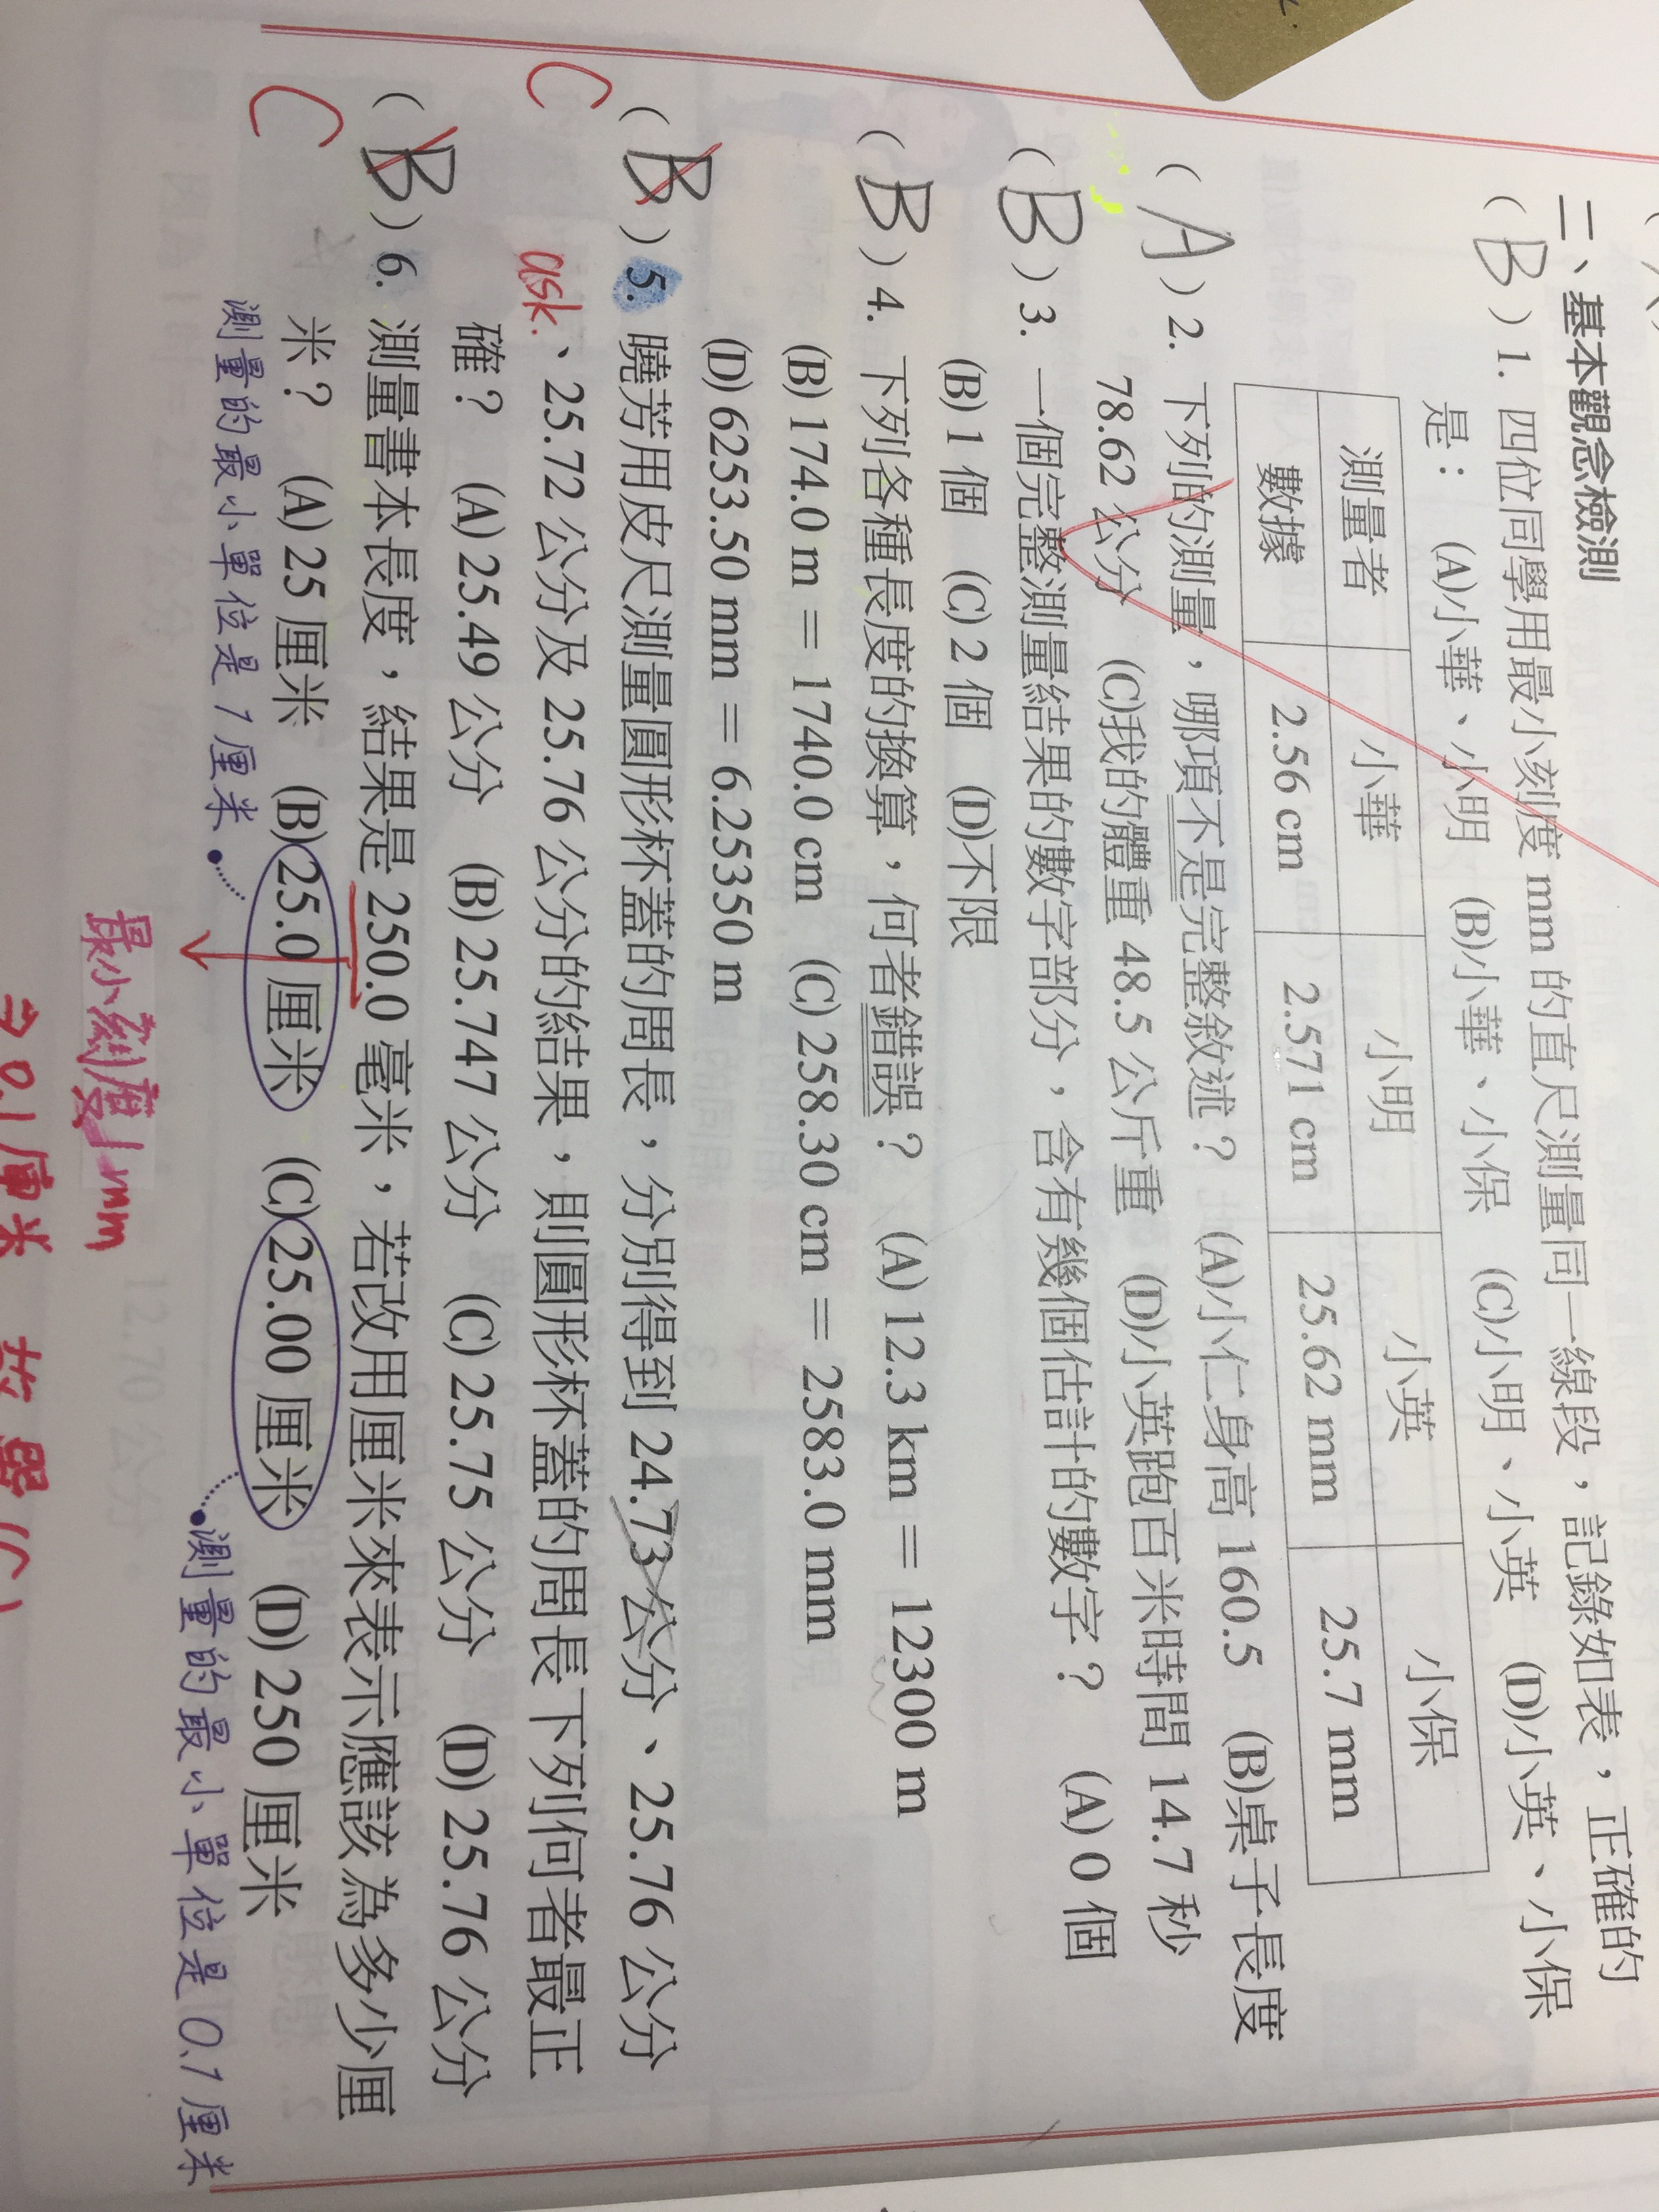 二、基本觀念檢測
( B ) 1. 四位同學用最小刻度 mm 的直尺測量同一線段，記錄如表，正確的
是： (A)小華、小明 (B)小華、小保 (C)小明、小英 (D)小英、小保
測量者 小華 小明 小英 小保
數據 2.56 cm 2.571 cm 25.62 mm 25.7 mm
( A ) 2. 下列的測量，哪項不是完整敘述？ (A)小仁身高 160.5 (B)桌子長度
78.62 公分 (C)我的體重 48.5 公斤重 (D)小英跑百米時間 14.7 秒
( B ) 3. 一個完整測量結果的數字部分，含有幾個估計的數字？ (A) 0 個
(B) 1 個 (C) 2 個 (D)不限
( B ) 4. 下列各種長度的換算，何者錯誤？ (A) 12.3 km = 12300 m
(B) 174.0 m = 1740.0 cm (C) 258.30 cm = 2583.0 mm
(D) 6253.50 mm = 6.25350 m
C
( B ) 5. 曉芳用皮尺測量圓形杯蓋的周長，分別得到 24.73 公分、25.76 公分
ask.
、25.72 公分及 25.76 公分的結果，則圓形杯蓋的周長下列何者最正
確？ (A) 25.49 公分 (B) 25.747 公分 (C) 25.75 公分 (D) 25.76 公分
C
( B ) 6. 測量書本長度，結果是 250.0 毫米，若改用厘米來表示應該為多少厘
米？ (A) 25 厘米 (B) 25.0 厘米 (C) 25.00 厘米 (D) 250 厘米
測量的最小單位是 1 厘米
測量的最小單位是 0.1 厘米
最小刻度 1 mm
→ 0.1 厘米 故選 (C)